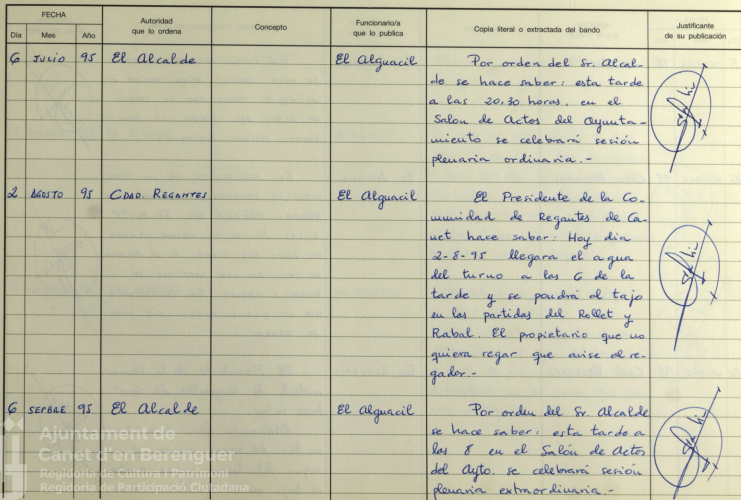 FECHA
Autoridad
que lo ordena
Concepto
Funcionario/a
que lo publica
Copia literal o extractada del bando
Justificante
de su publicación
Día Mes Año
6 JULIO 95 El Alcalde El Alguacil Por orden del Sr. Alcal-
de se hace saber: esta tarde
a las 20,30 horas, en el
Salon de Actos del Ayunta-
miento se celebrará sesión
plenaria ordinaria.-
2 AGOSTO 95 CDAD. REGANTES El Alguacil El Presidente de la Co-
munidad de Regantes de Ca-
net hace saber: Hoy dia
2-8-95 llegara el agua
del turno a las 6 de la
tarde y se pondrá al tajo
en las partidas del Rollet y
Rabal. El propietario que no
quiera regar que avise al re-
gador.-
6 SEPBRE 95 El Alcalde El Alguacil Por orden del Sr. Alcalde
se hace saber: esta tarde a
las 8 en el Salón de Actos
del Ayto. se celebrará sesión
plenaria extraordinaria.-
Ajuntament de
Canet d'en Berenguer
Regidoria de Cultura i Patrimoni
Regidoria de Participació Ciutadana